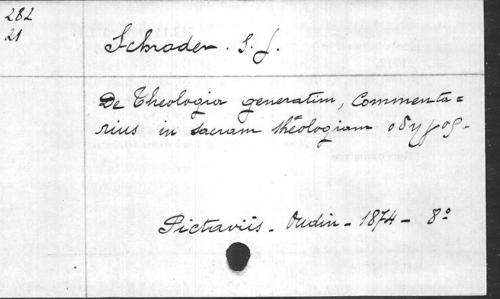 282
21
Schrader. S. J.
De Theologia generatim, Commenta=
rius in sacram théologiam οδηγος-
Pictaviis - Oudin - 1874 - 8°